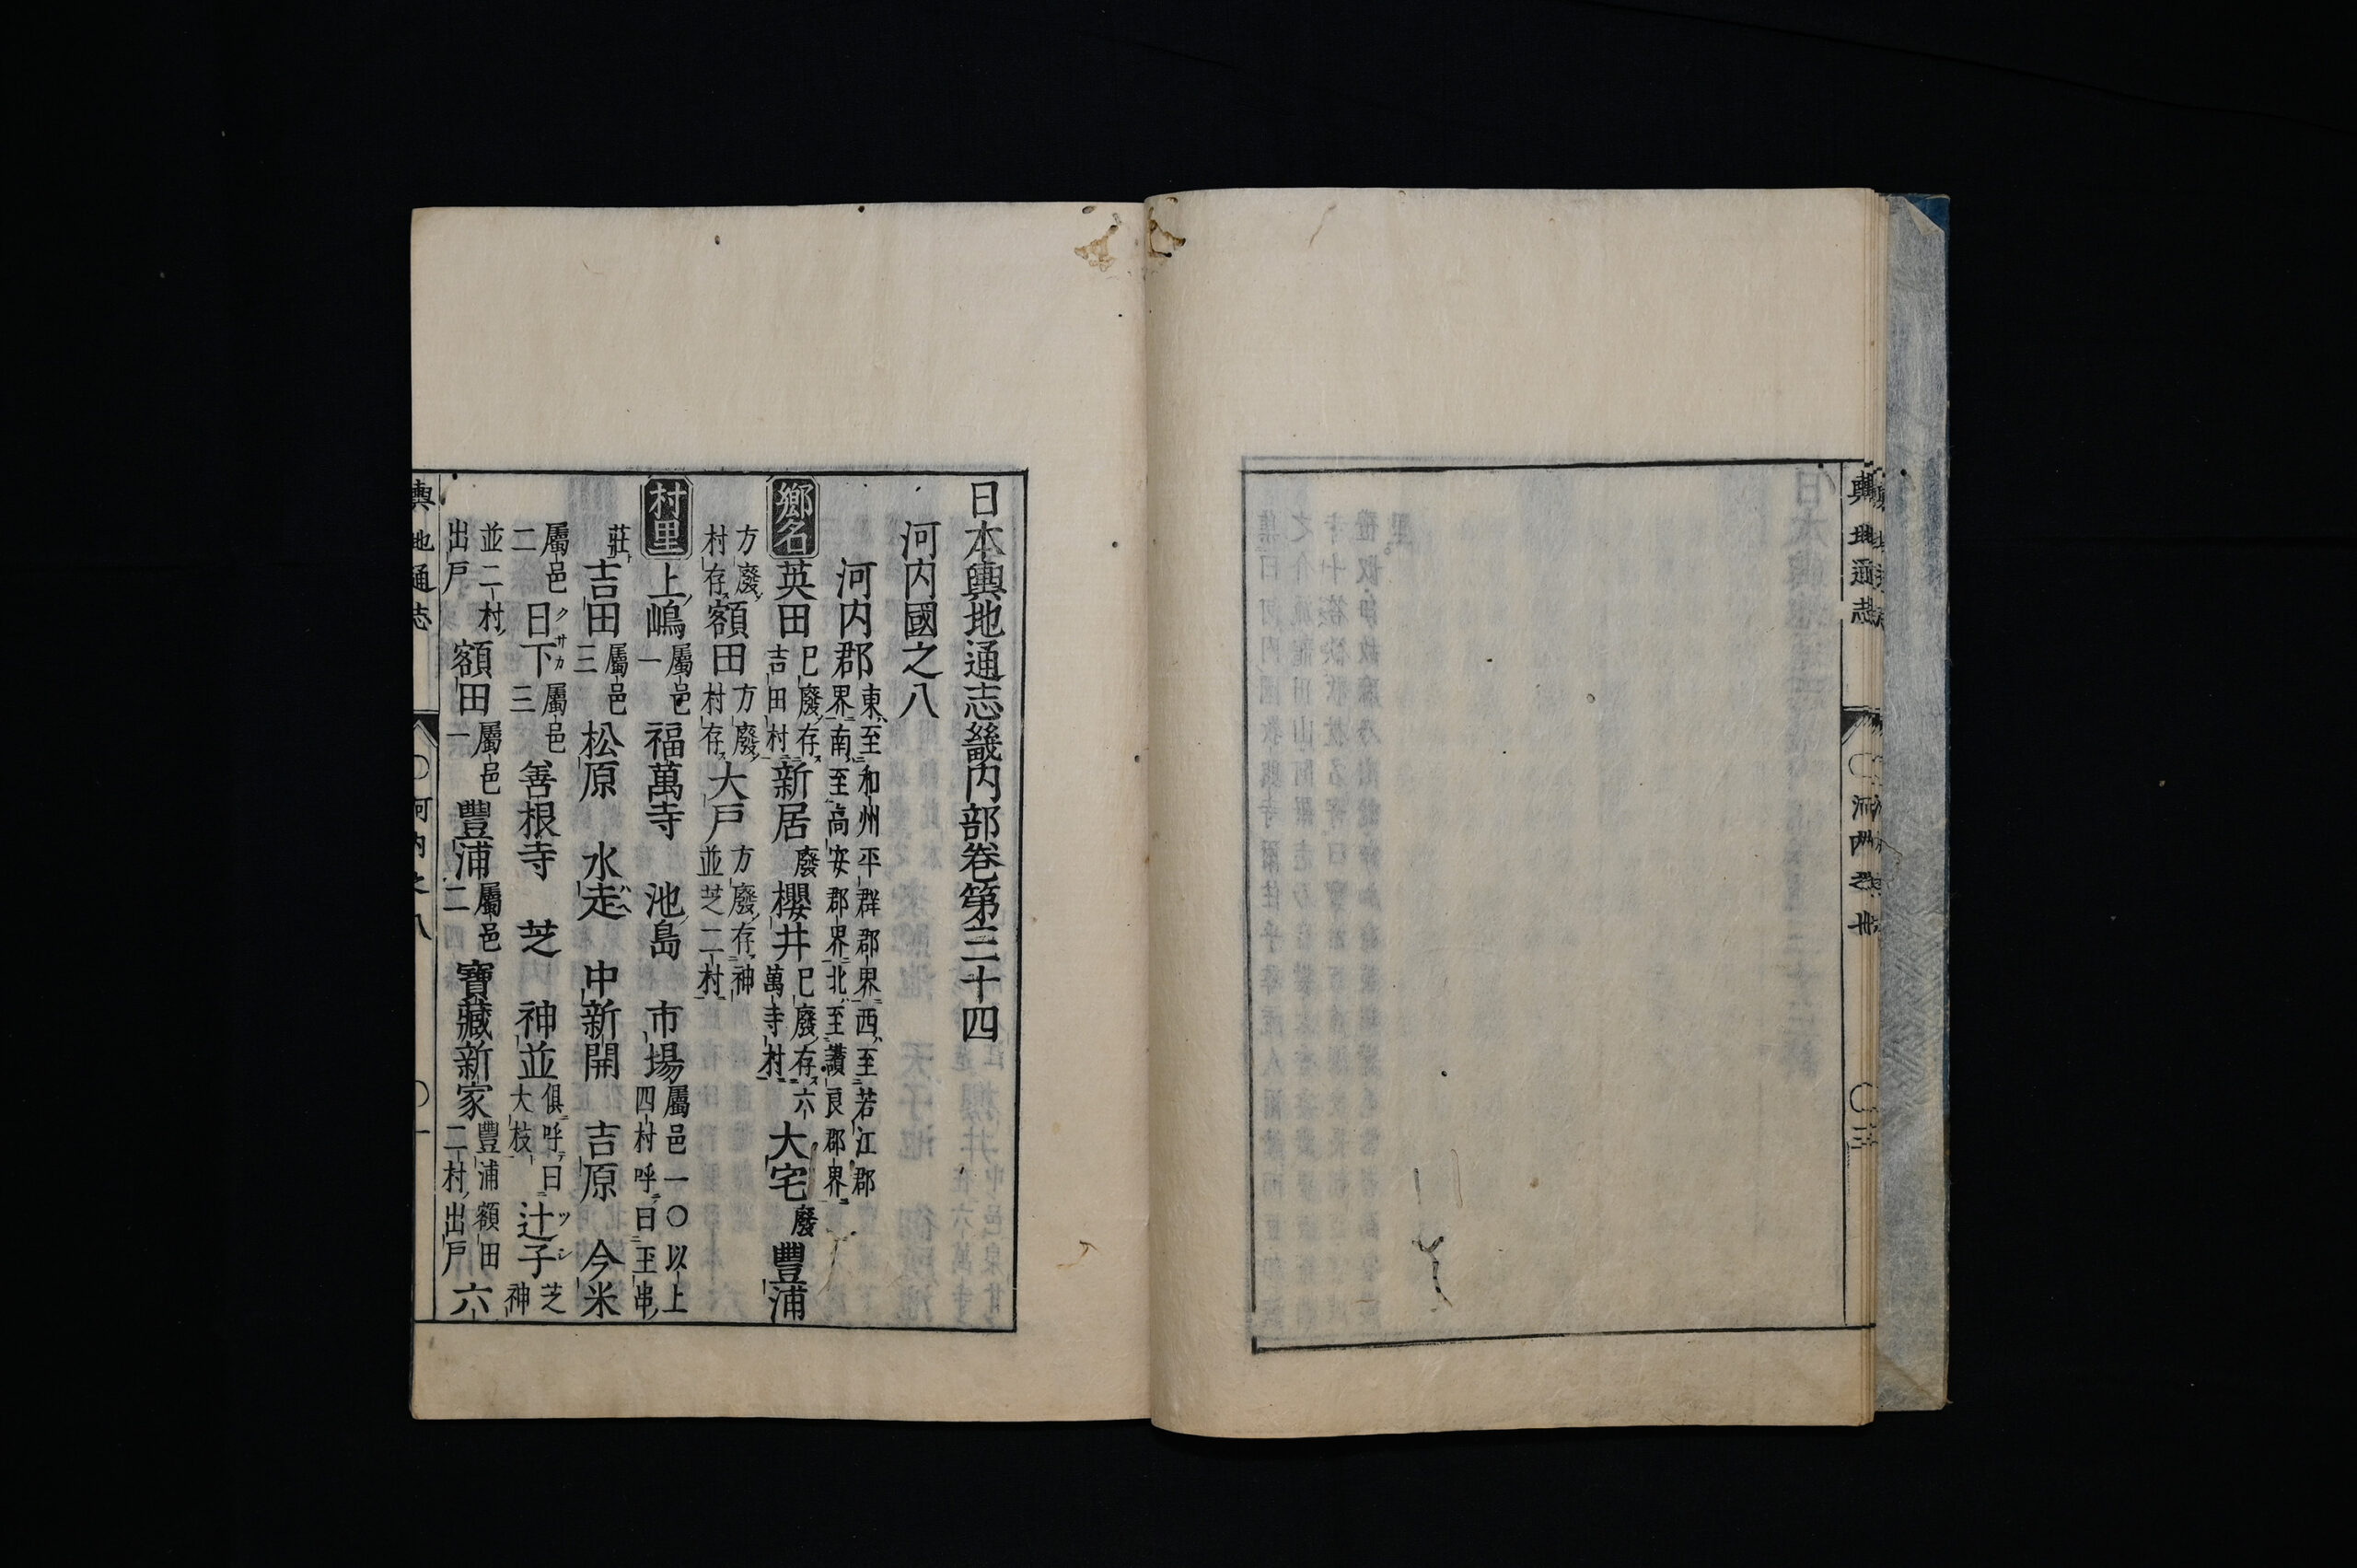 輿地通志
日本輿地通志畿内部卷第三十四
河内國之八
河内郡東至和州平群郡界西至若江郡界南至高安郡界北至讃良郡界
鄉名英田已廢存吉田村新居廢櫻井已廢存六萬寺村大宅廢豐浦
方廢村存額田方廢村存大戸方廢存神並芝二村
村里上嶋屬邑一福萬寺池島市場屬邑一〇以上四村呼曰玉串
莊吉田屬邑三松原水走中新開吉原今米
屬邑二日下屬邑三善根寺芝神並俱呼曰大枝辻子芝神
並二村出戸額田屬邑一豐浦屬邑二寶藏新家豐浦額田二村出戸六
輿地通志〇河内之八〇一